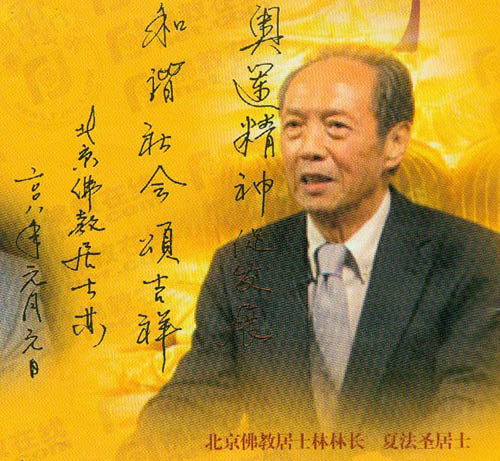 奥運精神促发展
和谐社会頌吉祥
北京佛教居士林
二〇〇八年元月元日
北京佛教居士林林长 夏法圣居士